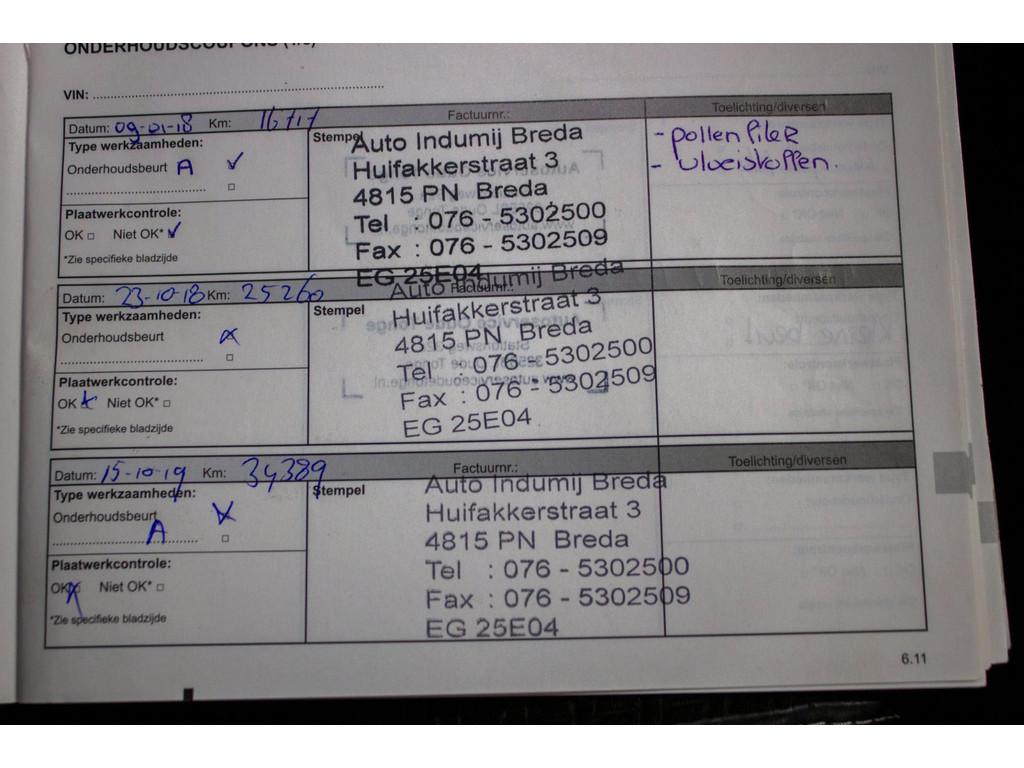 ONDERHOUDSCOUPONS
VIN:
Datum: 09-01-18 Km: 16717 Factuurnr.: Toelichting/diversen
Type werkzaamheden:
Onderhoudsbeurt A
Plaatwerkcontrole:
OK Niet OK*
*Zie specifieke bladzijde
Stempel
Auto Indumij Breda
Huifakkerstraat 3
4815 PN Breda
Tel : 076 - 5302500
Fax : 076 - 5302509
EG 25E04
- pollenfilter
- vloeistoffen.
Datum: 23-10-18 Km: 25260 Factuurnr.: Toelichting/diversen
Type werkzaamheden:
Onderhoudsbeurt
Plaatwerkcontrole:
OK Niet OK*
*Zie specifieke bladzijde
Stempel
Auto Indumij Breda
Huifakkerstraat 3
4815 PN Breda
Tel : 076 - 5302500
Fax : 076 - 5302509
EG 25E04
Datum: 15-10-19 Km: 34389 Factuurnr.: Toelichting/diversen
Type werkzaamheden:
Onderhoudsbeurt
A
Plaatwerkcontrole:
OK Niet OK*
*Zie specifieke bladzijde
Stempel
Auto Indumij Breda
Huifakkerstraat 3
4815 PN Breda
Tel : 076 - 5302500
Fax : 076 - 5302509
EG 25E04
6.11